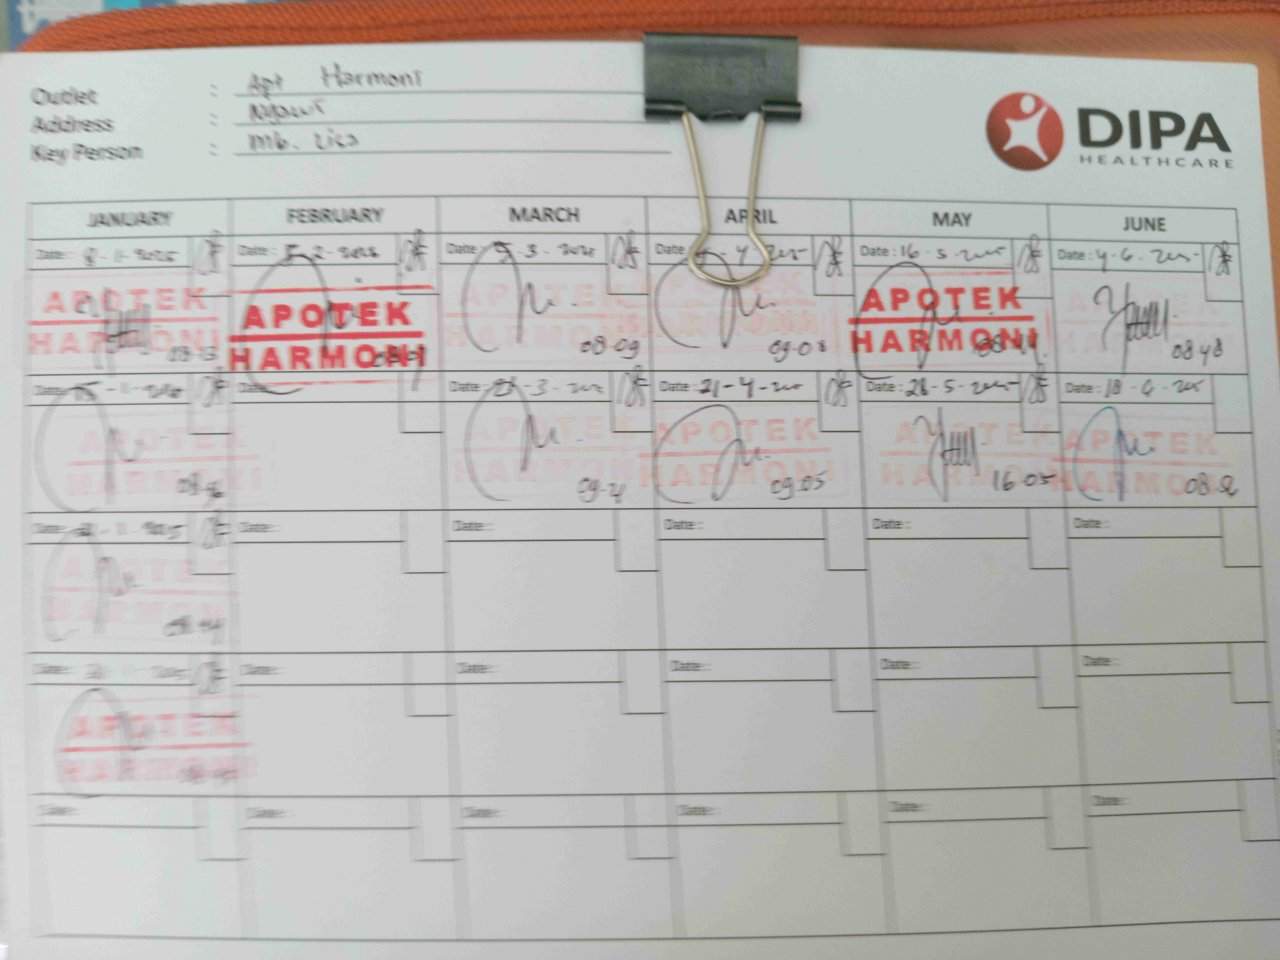 Outlet : Apt Harmoni
Address : Ngawi
Key Person : Mb. Lies
DIPA
HEALTHCARE
JANUARY FEBRUARY MARCH APRIL MAY JUNE
Date: 8-1-2025 Date: 5-2-2025 Date: 5-3-2025 Date: -4-2025 Date: 16-5-2025 Date: 4-6-2025
APOTEK APOTEK APOTEK APOTEK APOTEK APOTEK
HARMONI HARMONI HARMONI HARMONI HARMONI HARMONI
08-13 08-09 09-08 08 48
Date: -1-2025 Date: Date: -3-2025 Date: 21-4-2025 Date: 28-5-2025 Date: 18-6-2025
APOTEK APOTEK APOTEK APOTEK APOTEK
HARMONI HARMONI HARMONI HARMONI HARMONI
09-21 09.05 16.05
Date: -1-2025 Date: Date: Date: Date: Date:
APOTEK
HARMONI
Date: Date: Date: Date: Date: Date:
APOTEK
HARMONI
Date: Date: Date: Date: Date: Date: